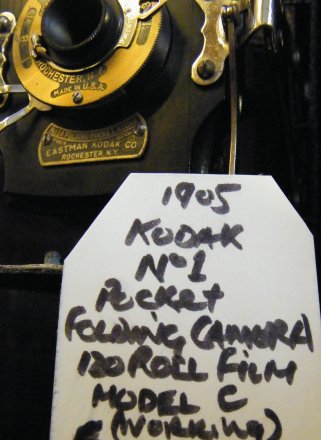 ROCHESTER, N.Y.
MADE IN U.S.A.
EASTMAN KODAK CO
ROCHESTER, N.Y.
1905
KODAK
Nº1
POCKET
FOLDING CAMERA
120 ROLL FILM
MODEL C
(WORKING)